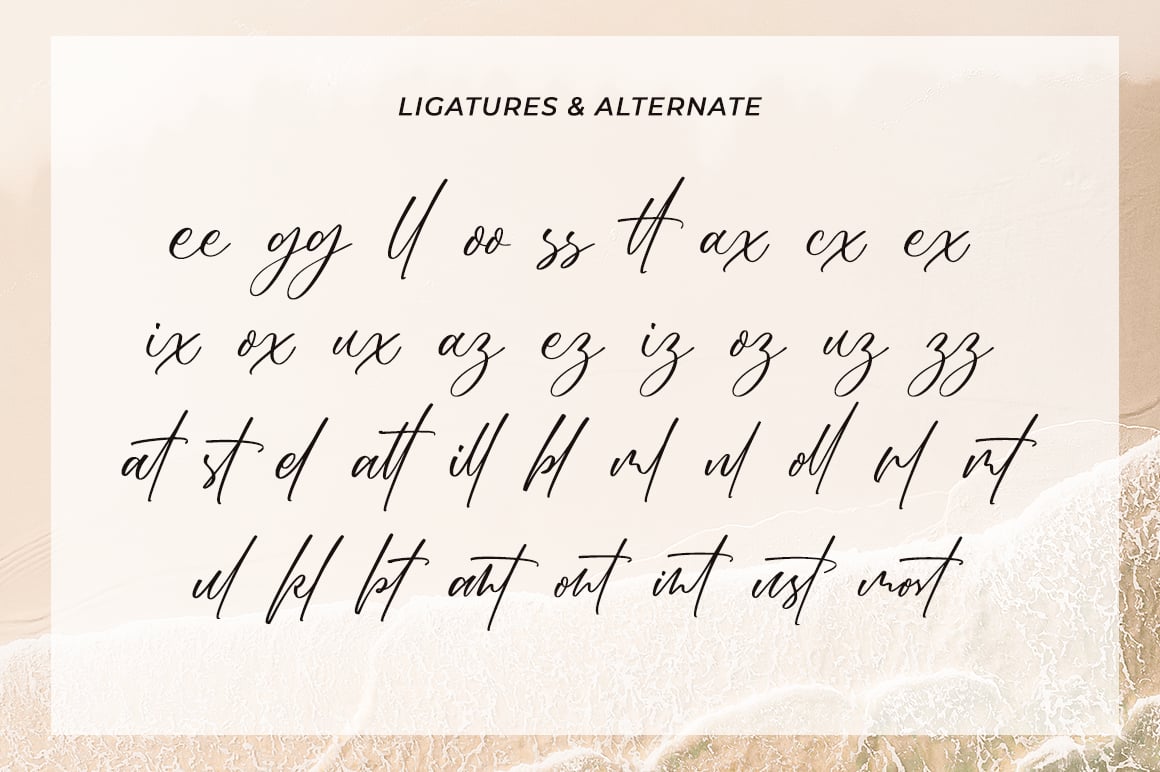 LIGATURES & ALTERNATE
ee gg ll oo ss tt ax cx ex
ix ox ux az ez iz oz uz zz
at st el att ill bl ml nl oll rl rnt
ul kl bt ant ont int ust most